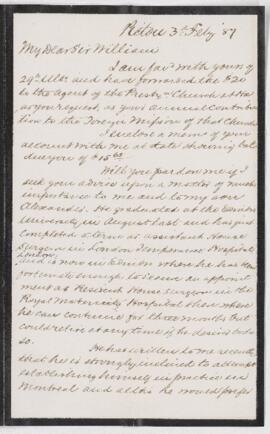 Pictou 3rd Feby '87
My Dear Sir William
I am fav'd with yours of
29th Ulto. and have forwarded the $20
to the Agent of the Presby'n Church at
as you request, as your annual contribu-
tion to the Foreign Mission of that Church
I enclose a mem of your
account with me at date showing bal
due you of $15
Will you pardon me if I
seek your advice upon a matter of much
importance to me and to my son
Alexander. He graduated at the
University in August last and has just
completed a term as assistant House
Surgeon in London Temperance Hospital
London,
and is now in where he has been
fortunate enough to secure an appoint
ment as Resident House Surgeon in the
Royal Maternity Hospital there where
he can continue for three months but
could retire at any time if he desires to do
so.
He has written to me recently
that he is strongly inclined to attempt
establishing himself in practice in
Montreal and altho he would prefer